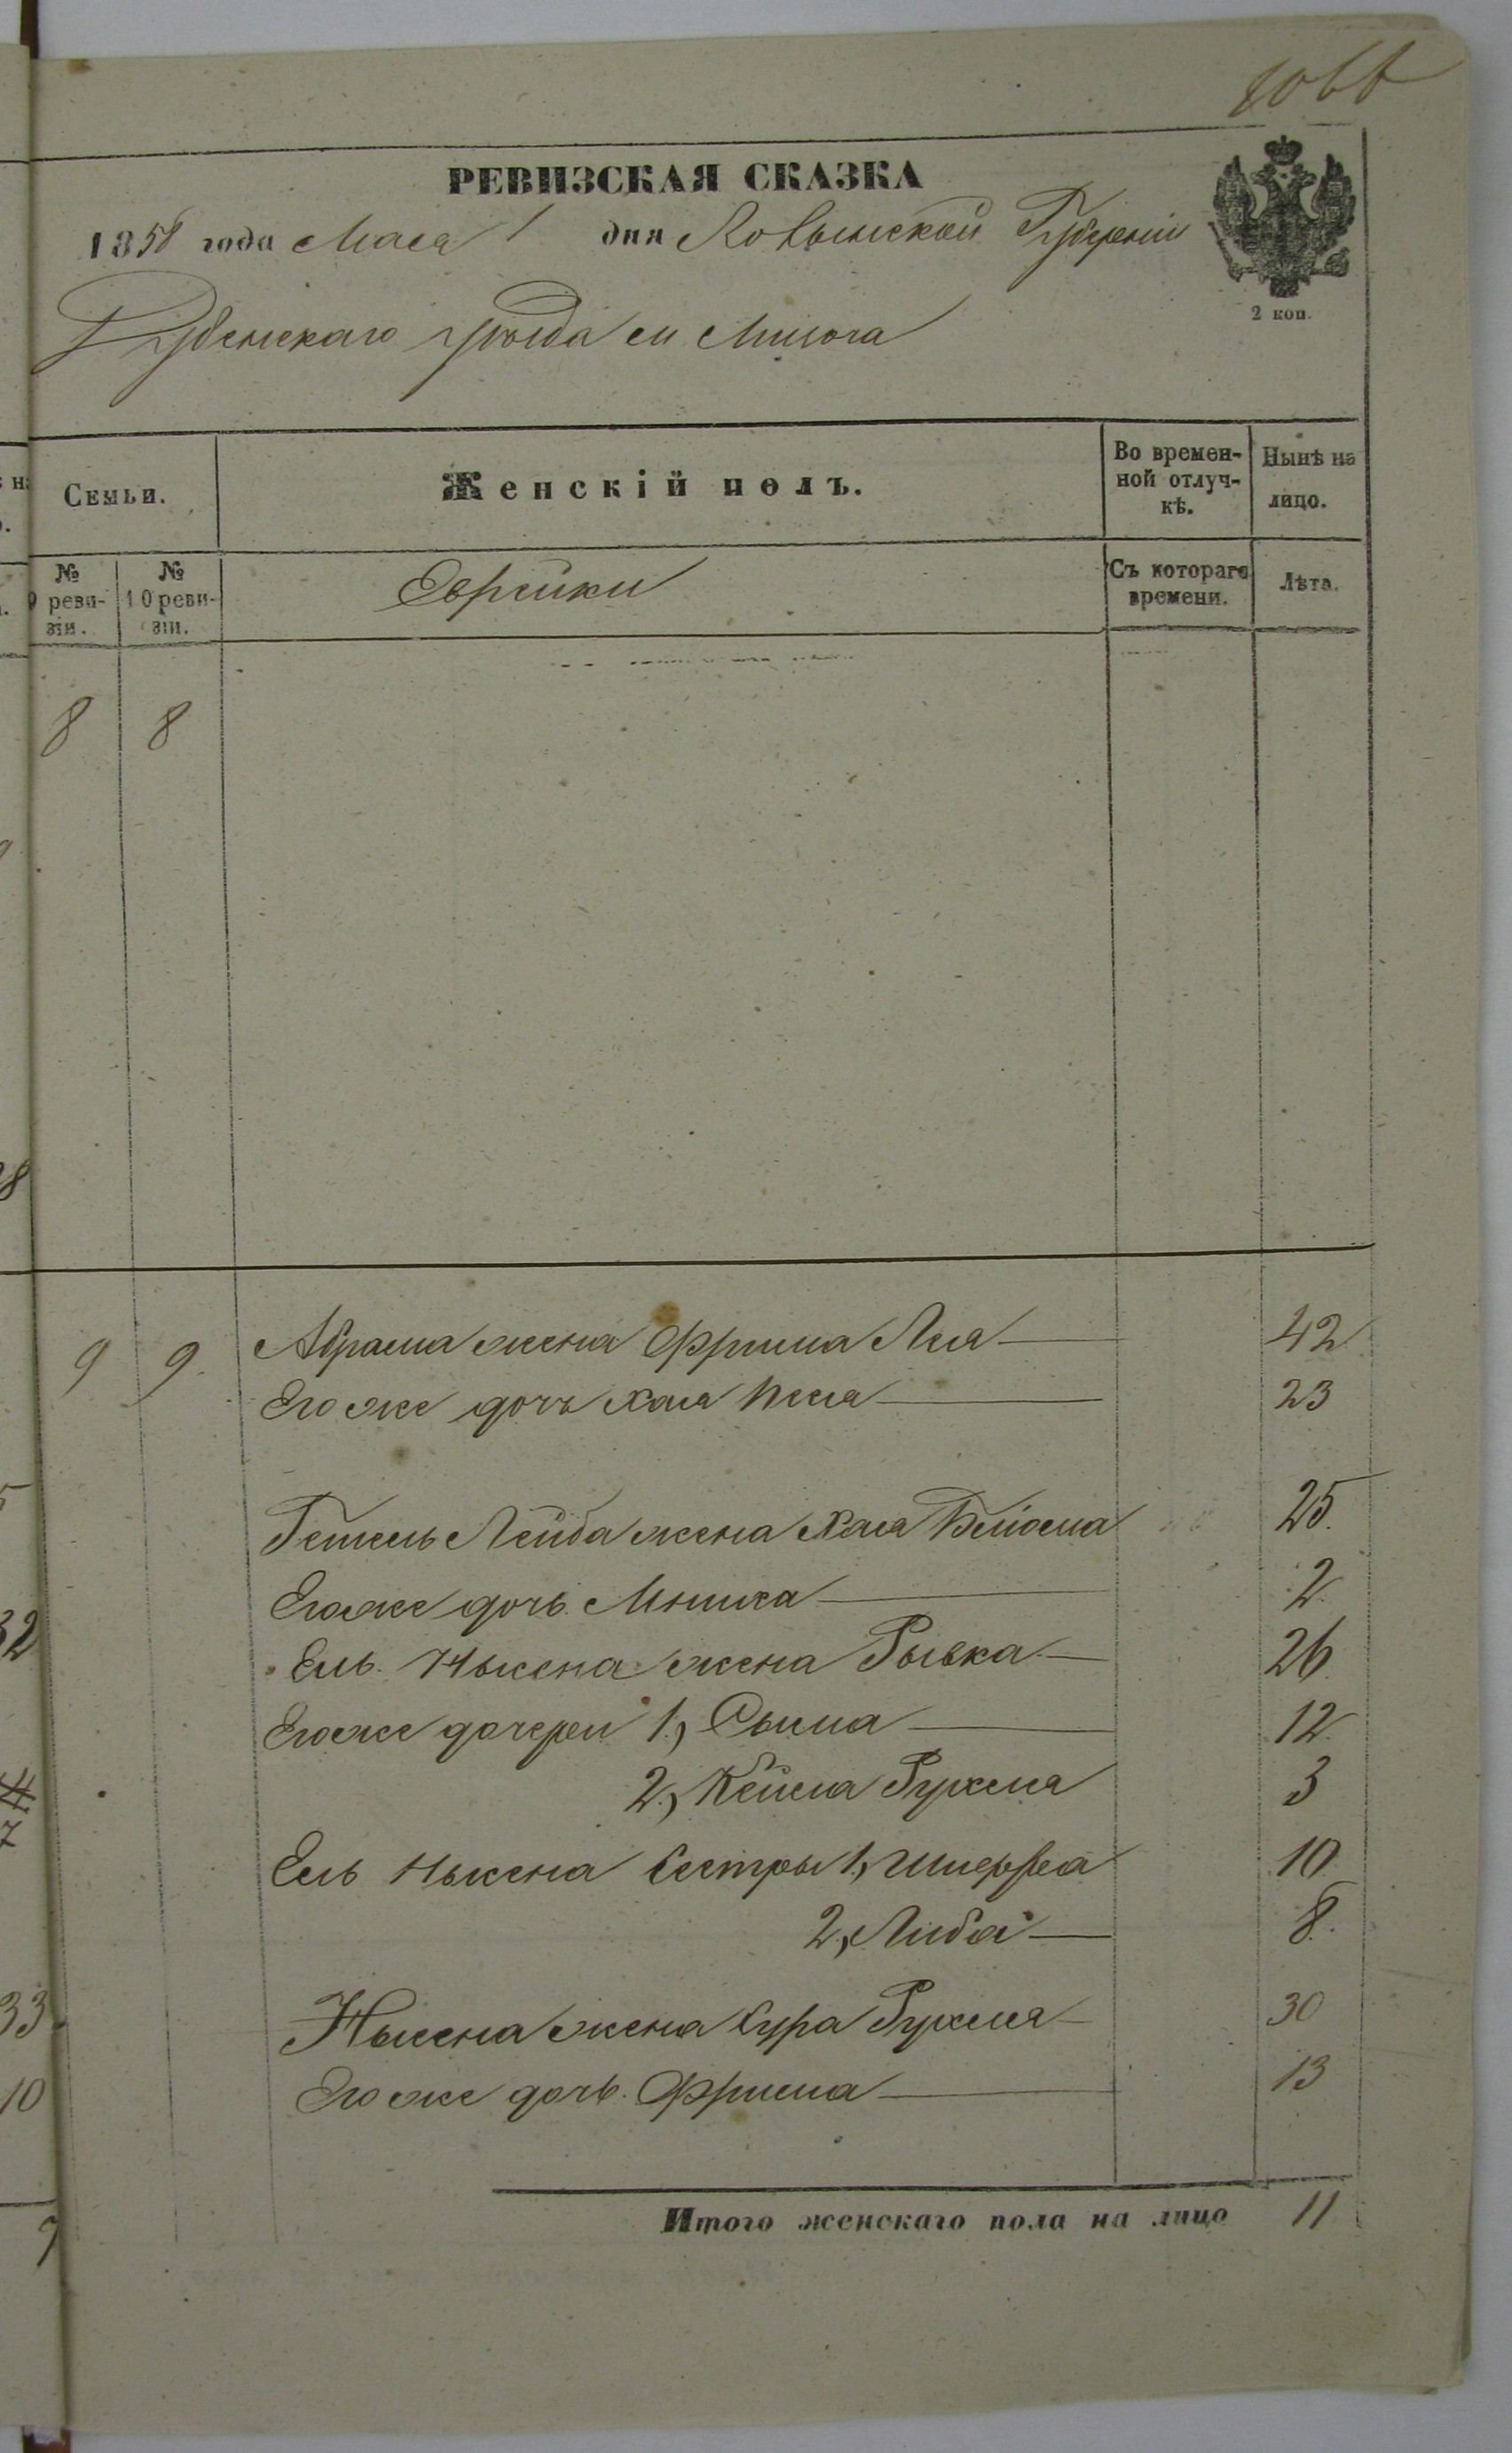 РЕВИЗСКАЯ СКАЗКА
1858 года Мая 1 дня Волынской Губерніи
2 коп.
Дубенскаго уѣзда м
Семьи.
Женскій полъ.
Во времен-
ной отлуч-
кѣ.
Нынѣ на
лицо.
№
9 реви-
зіи.
№
10 реви-
зіи.
Еврейки
Съ котораго
времени.
Лѣта.
8 8
9 9. Абрама жена Фрима Лея 42
Его же дочь Хая Песя 23
Лейба жена Хая Бейла 25.
Егоже дочь 2.
Ель Нысена жена Рывка 26
Егоже дочери 1, Сыма 12.
2, Рухля 3
Ель Нысена Сестры 1, 10.
2, Либа 8.
Нысена жена Сура Рухля 30
Его же дочь Фрима 13
Итого женскаго пола на лицо 11
28
32
7
33
10
7